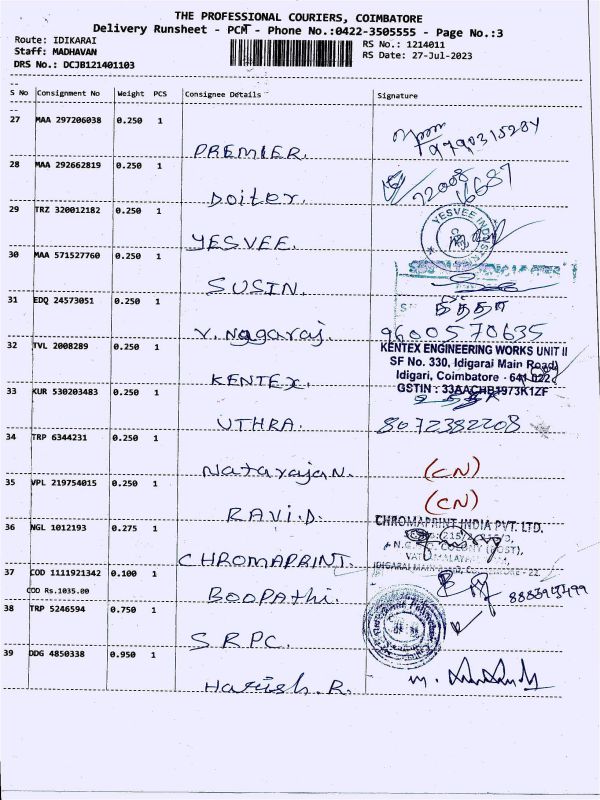 THE PROFESSIONAL COURIERS, COIMBATORE
Delivery Runsheet - PCMT - Phone No.:0422-3505555 - Page No.:3
Route: IDIKARAI
RS No.: 1214011
Staff: MADHAVAN
RS Date: 27-Jul-2023
DRS No.: DCJB121401103
S No Consignment No Weight PCS Consignee Details Signature
27 MAA 297206038 0.250 1
PREMIER. 9790315284
28 MAA 292662819 0.250 1
Doitex. 72008 16687
29 TRZ 320012182 0.250 1
YESVEE. YESVEE
30 MAA 571527760 0.250 1
SUSIN.
31 EDQ 24573051 0.250 1
V. Nagaraj. 9600570635
32 TVL 2008289 0.250 1
KENTEX ENGINEERING WORKS UNIT II
SF No. 330, Idigarai Main Road
Idigari, Coimbatore - 641 022
GSTIN : 33AACHB1973K1ZF
KENTEX.
33 KUR 530203483 0.250 1
UTHRA. 8072382208
34 TRP 6344231 0.250 1
Natarajan. (CN)
35 VPL 219754015 0.250 1
RAVi.D (CN)
36 NGL 1012193 0.275 1
CHROMAPRINT INDIA PVT. LTD.
CHROMAPRINT.
37 COD 1111921342 0.100 1
COD Rs.1035.00
BOOPAThi.
38 TRP 5246594 0.750 1
S.R.P.C.
39 DDG 4850338 0.950 1
Harish. R.